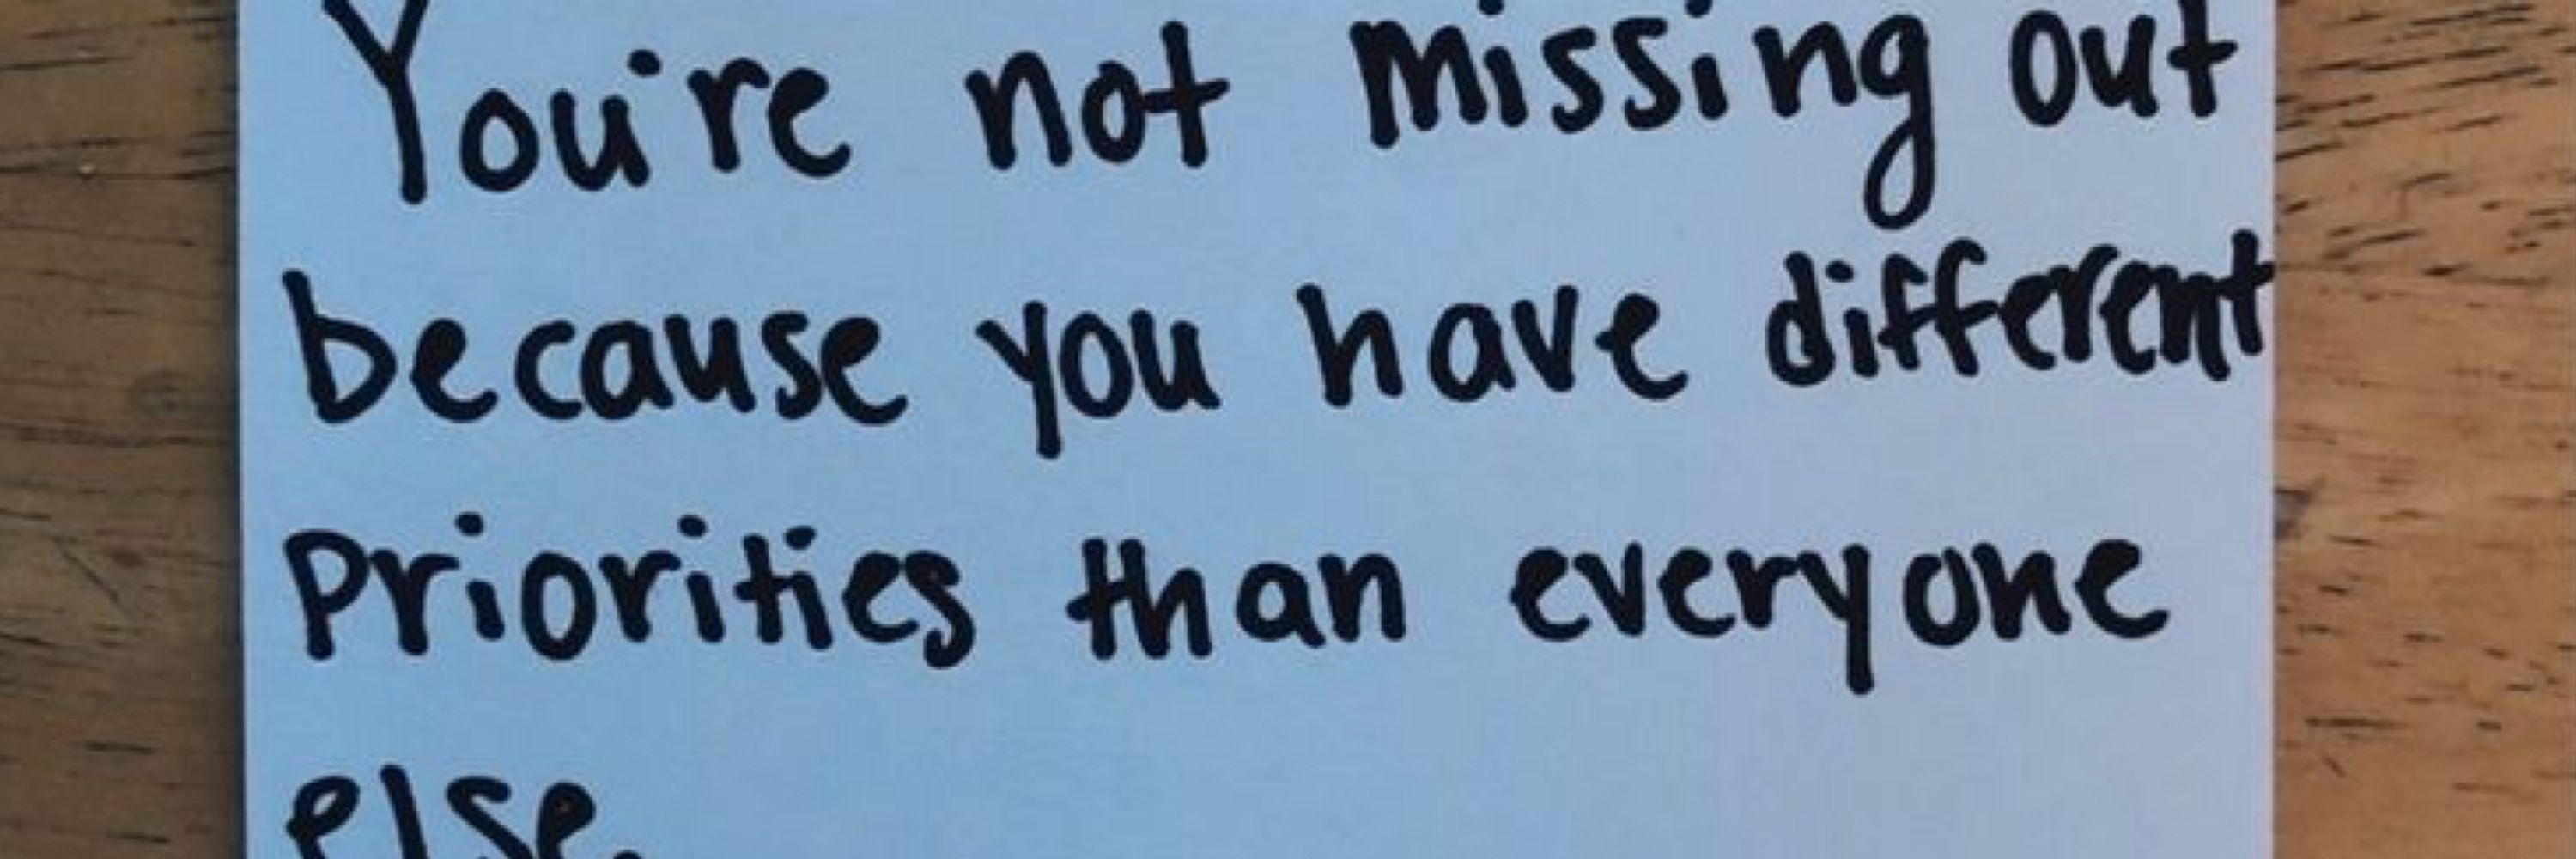 You're not missing out
because you have different
Priorities than everyone
else.